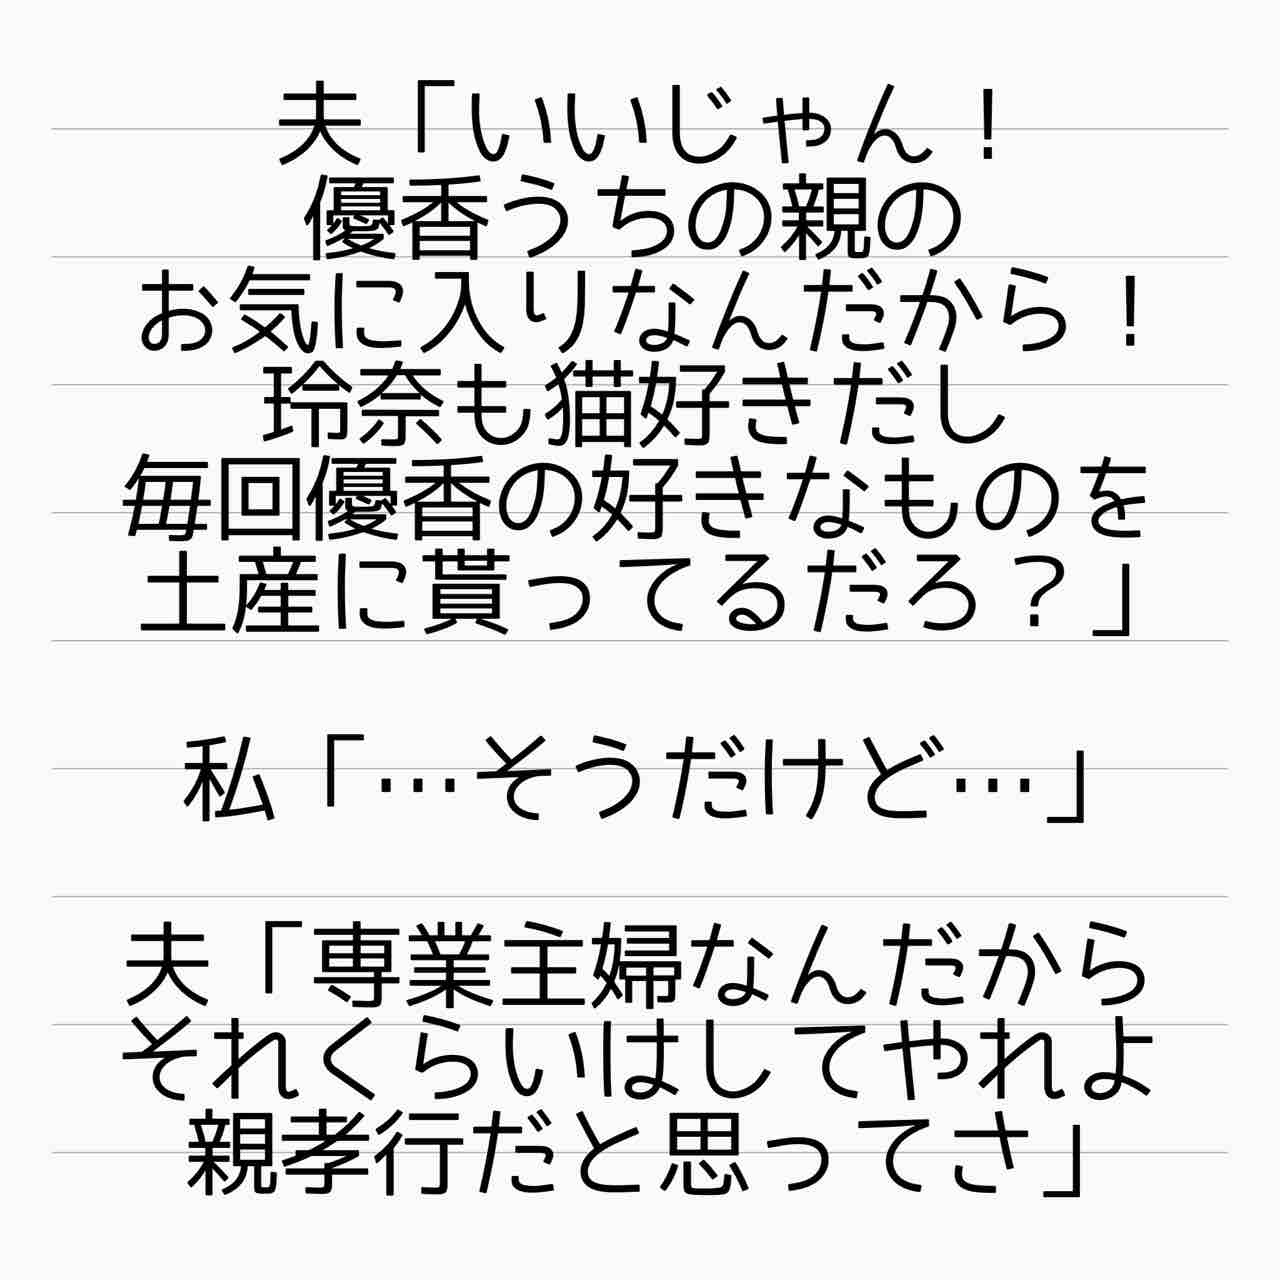 夫「いいじゃん！
優香うちの親の
お気に入りなんだから！
玲奈も猫好きだし
毎回優香の好きなものを
土産に貰ってるだろ？」
私「…そうだけど…」
夫「専業主婦なんだから
それくらいはしてやれよ
親孝行だと思ってさ」